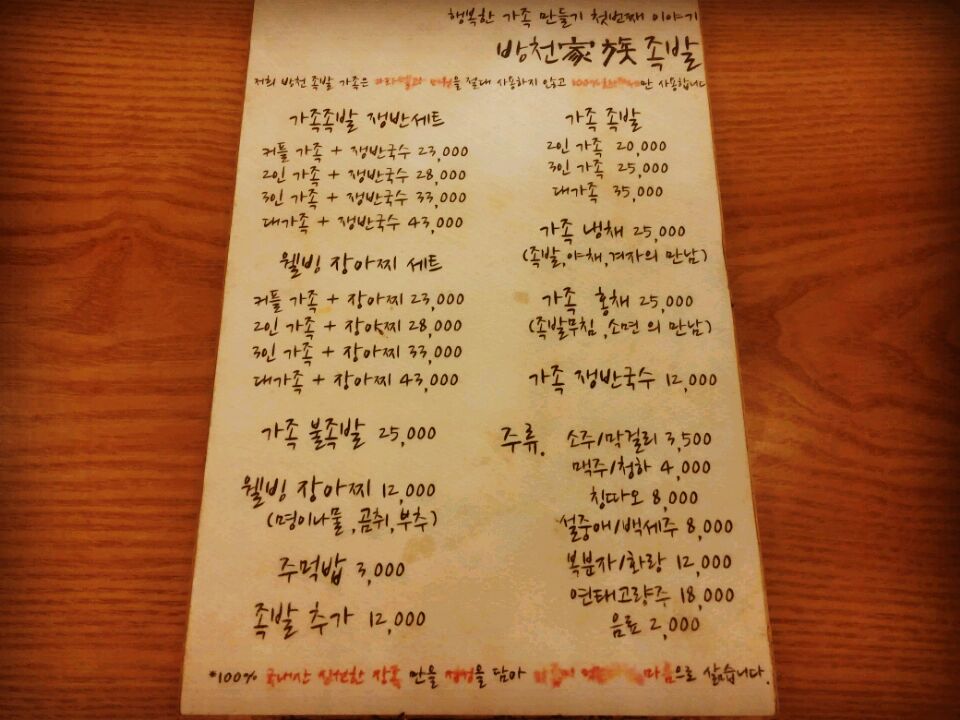 행복한 가족 만들기 첫번째 이야기
방천家族족발
저희 방천 족발 가족은 을 절대 사용하지 않고 100% 만 사용합니다
가족족발 쟁반세트
커플 가족 + 쟁반국수 23,000
2인 가족 + 쟁반국수 28,000
3인 가족 + 쟁반국수 33,000
대가족 + 쟁반국수 43,000
웰빙 장아찌 세트
커플 가족 + 장아찌 23,000
2인 가족 + 장아찌 28,000
3인 가족 + 장아찌 33,000
대가족 + 장아찌 43,000
가족 불족발 25,000
웰빙 장아찌 12,000
(명이나물,곰취,부추)
주먹밥 3,000
족발 추가 12,000
가족 족발
2인 가족 20,000
3인 가족 25,000
대가족 35,000
가족 냉채 25,000
(족발,야채,겨자의 만남)
가족 홍채 25,000
(족발무침,소면 의 만남)
가족 쟁반국수 12,000
주류. 소주/막걸리 3,500
맥주/청하 4,000
칭따오 8,000
설중애/백세주 8,000
복분자/화랑 12,000
연태고량주 18,000
음료 2,000
*100% 국내산 장족 만을 정성을 담아 마음으로 삶습니다.